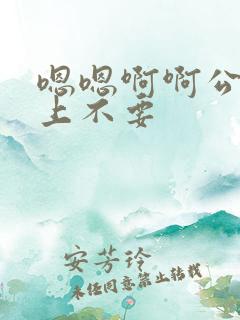 嗯嗯啊啊公
上不要
安芳玲
未经同意禁止转载